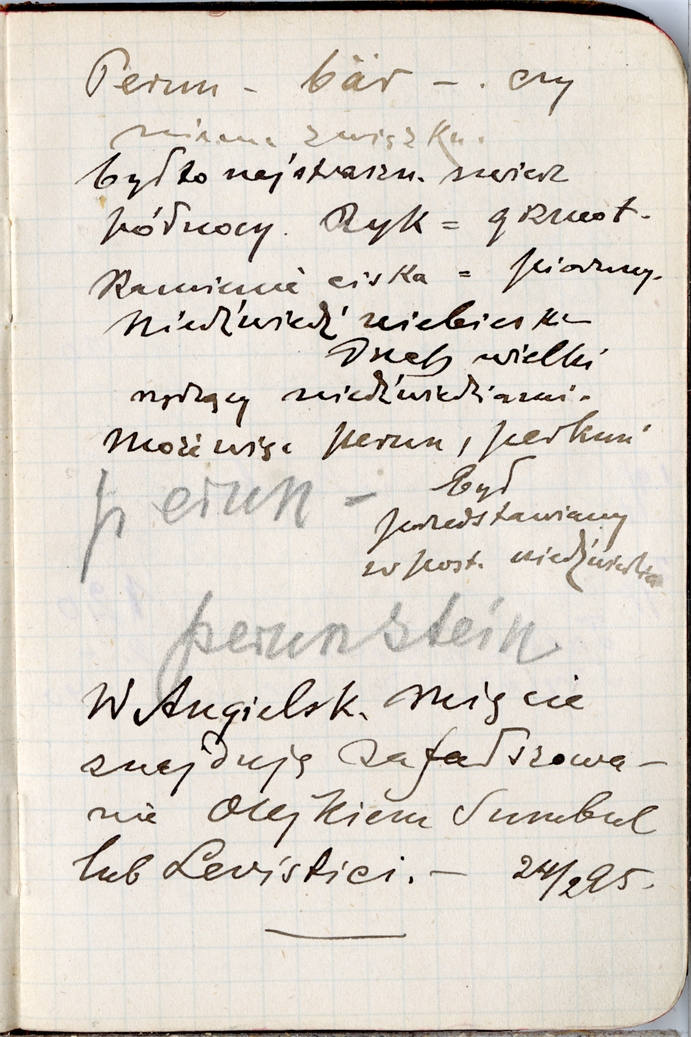 Perun - bär -. czy
niema związku.
był to najstraszn. zwierz
północy. Ryk = grzmot.
Kamienie ciska = pioruny.
Niedźwiedź niebieski
Duch wielki
rządzący niedźwiedziami.
Może więc perun, perkun
perun - był
przedstawiany
w post. niedźwiedzia
perunstein
W Angielsk. mięcie
znajdują zafałszowa-
nie Olejkiem Sumbul
lub Levistici. - 24/2 95.